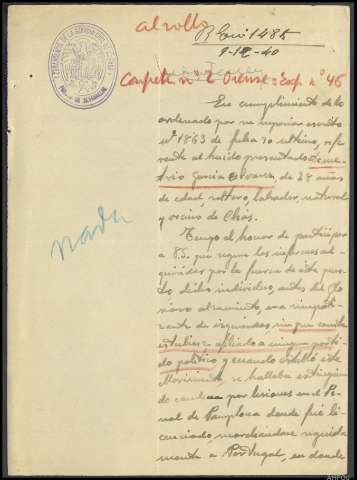 al rollo
R. Gral 1485
9-12-40
Compete nº 2 Orense = Exp. nº 46
En cumplimiento de lo
ordenado por su superior escrito
nº 1863 de fecha 30 ultimo, refe
rente al huido presentado
Garcia Alvarez, de 28 años
de edad, soltero, labrador, natural
y vecino de Chás.
nada
Tengo el honor de participar
a V.S. que segun los informes ad-
quiridos por la fuerza de este pues
to, dicho individuo, antes del Glo
rioso alzamiento, era simpati-
zante de izquierdas, sin que conste
estubiese afiliado a ningun parti-
do politico y cuando estalló este
Movimiento, se hallaba extinguien
do condena por lesiones en el Pe
nal de Pamplona donde fué li
cenciado, marchandose seguida
mente a Portugal, en donde